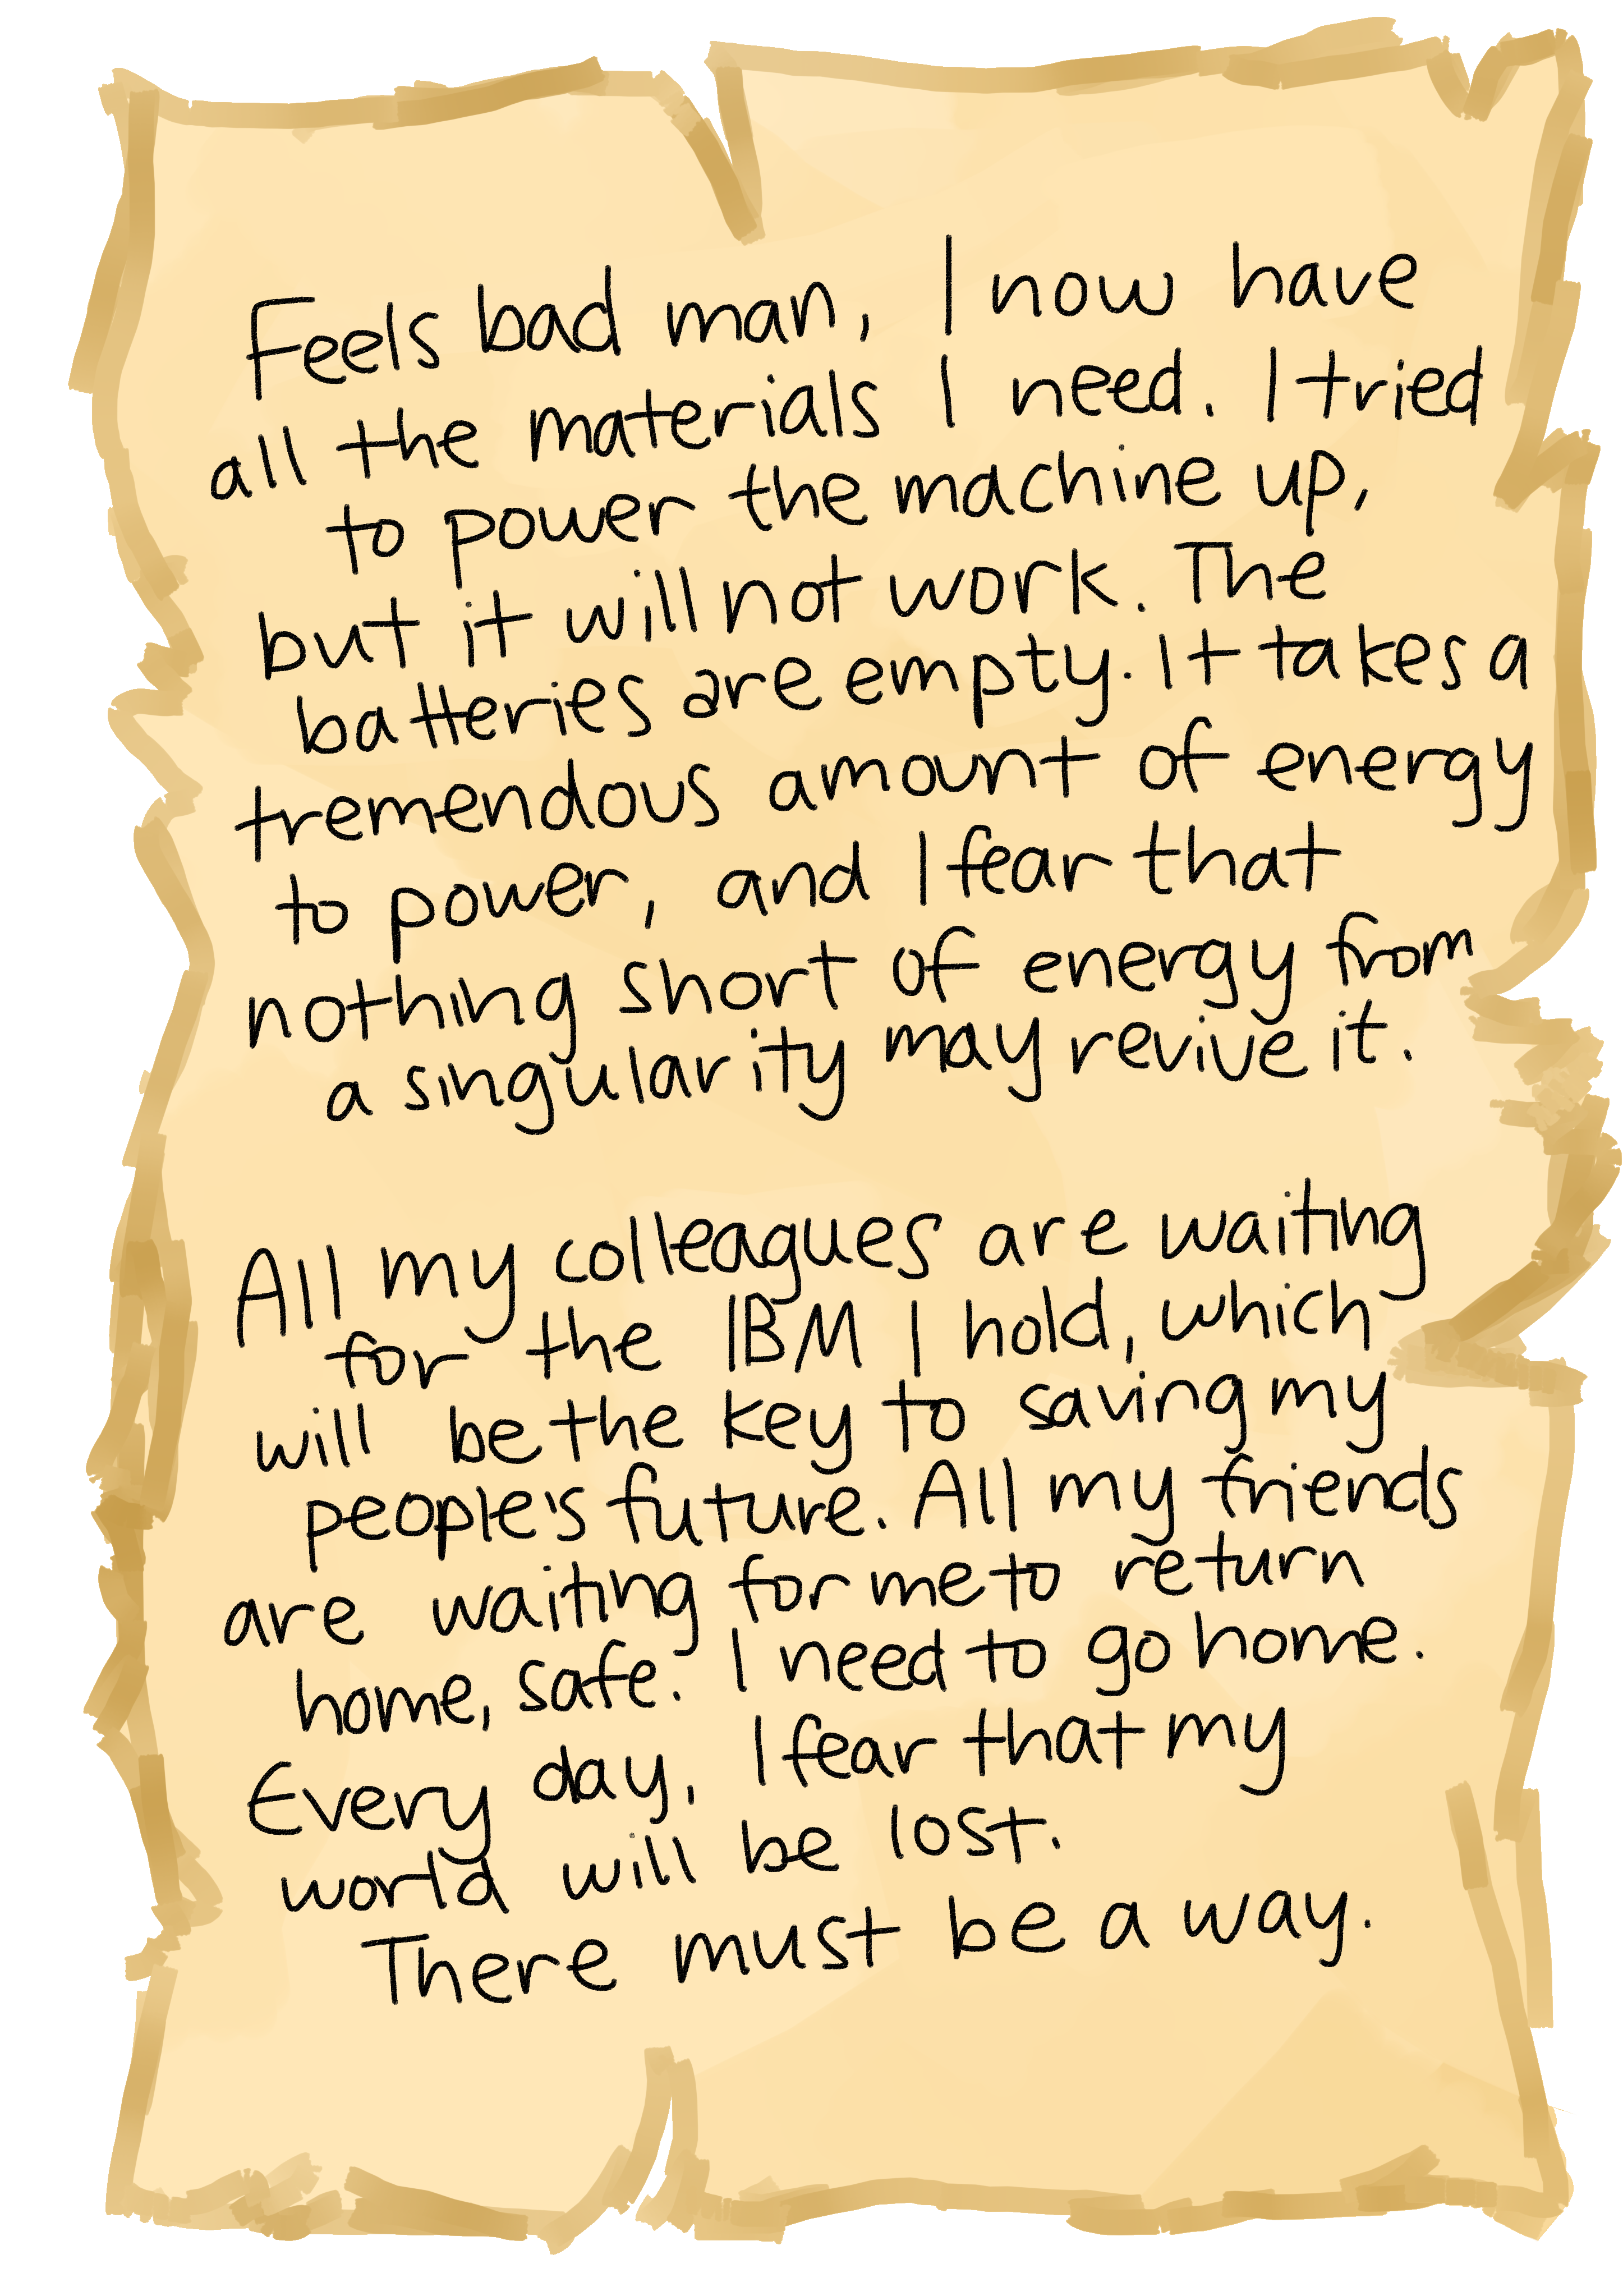 Feels bad man, I now have
all the materials I need. I tried
to power the machine up,
but it will not work. The
batteries are empty. It takes a
tremendous amount of energy
to power, and I fear that
nothing short of energy from
a singularity may revive it.
All my colleagues are waiting
for the IBM I hold, which
will be the key to saving my
people's future. All my friends
are waiting for me to return
home, safe. I need to go home.
Every day, I fear that my
world will be lost.
There must be a way.